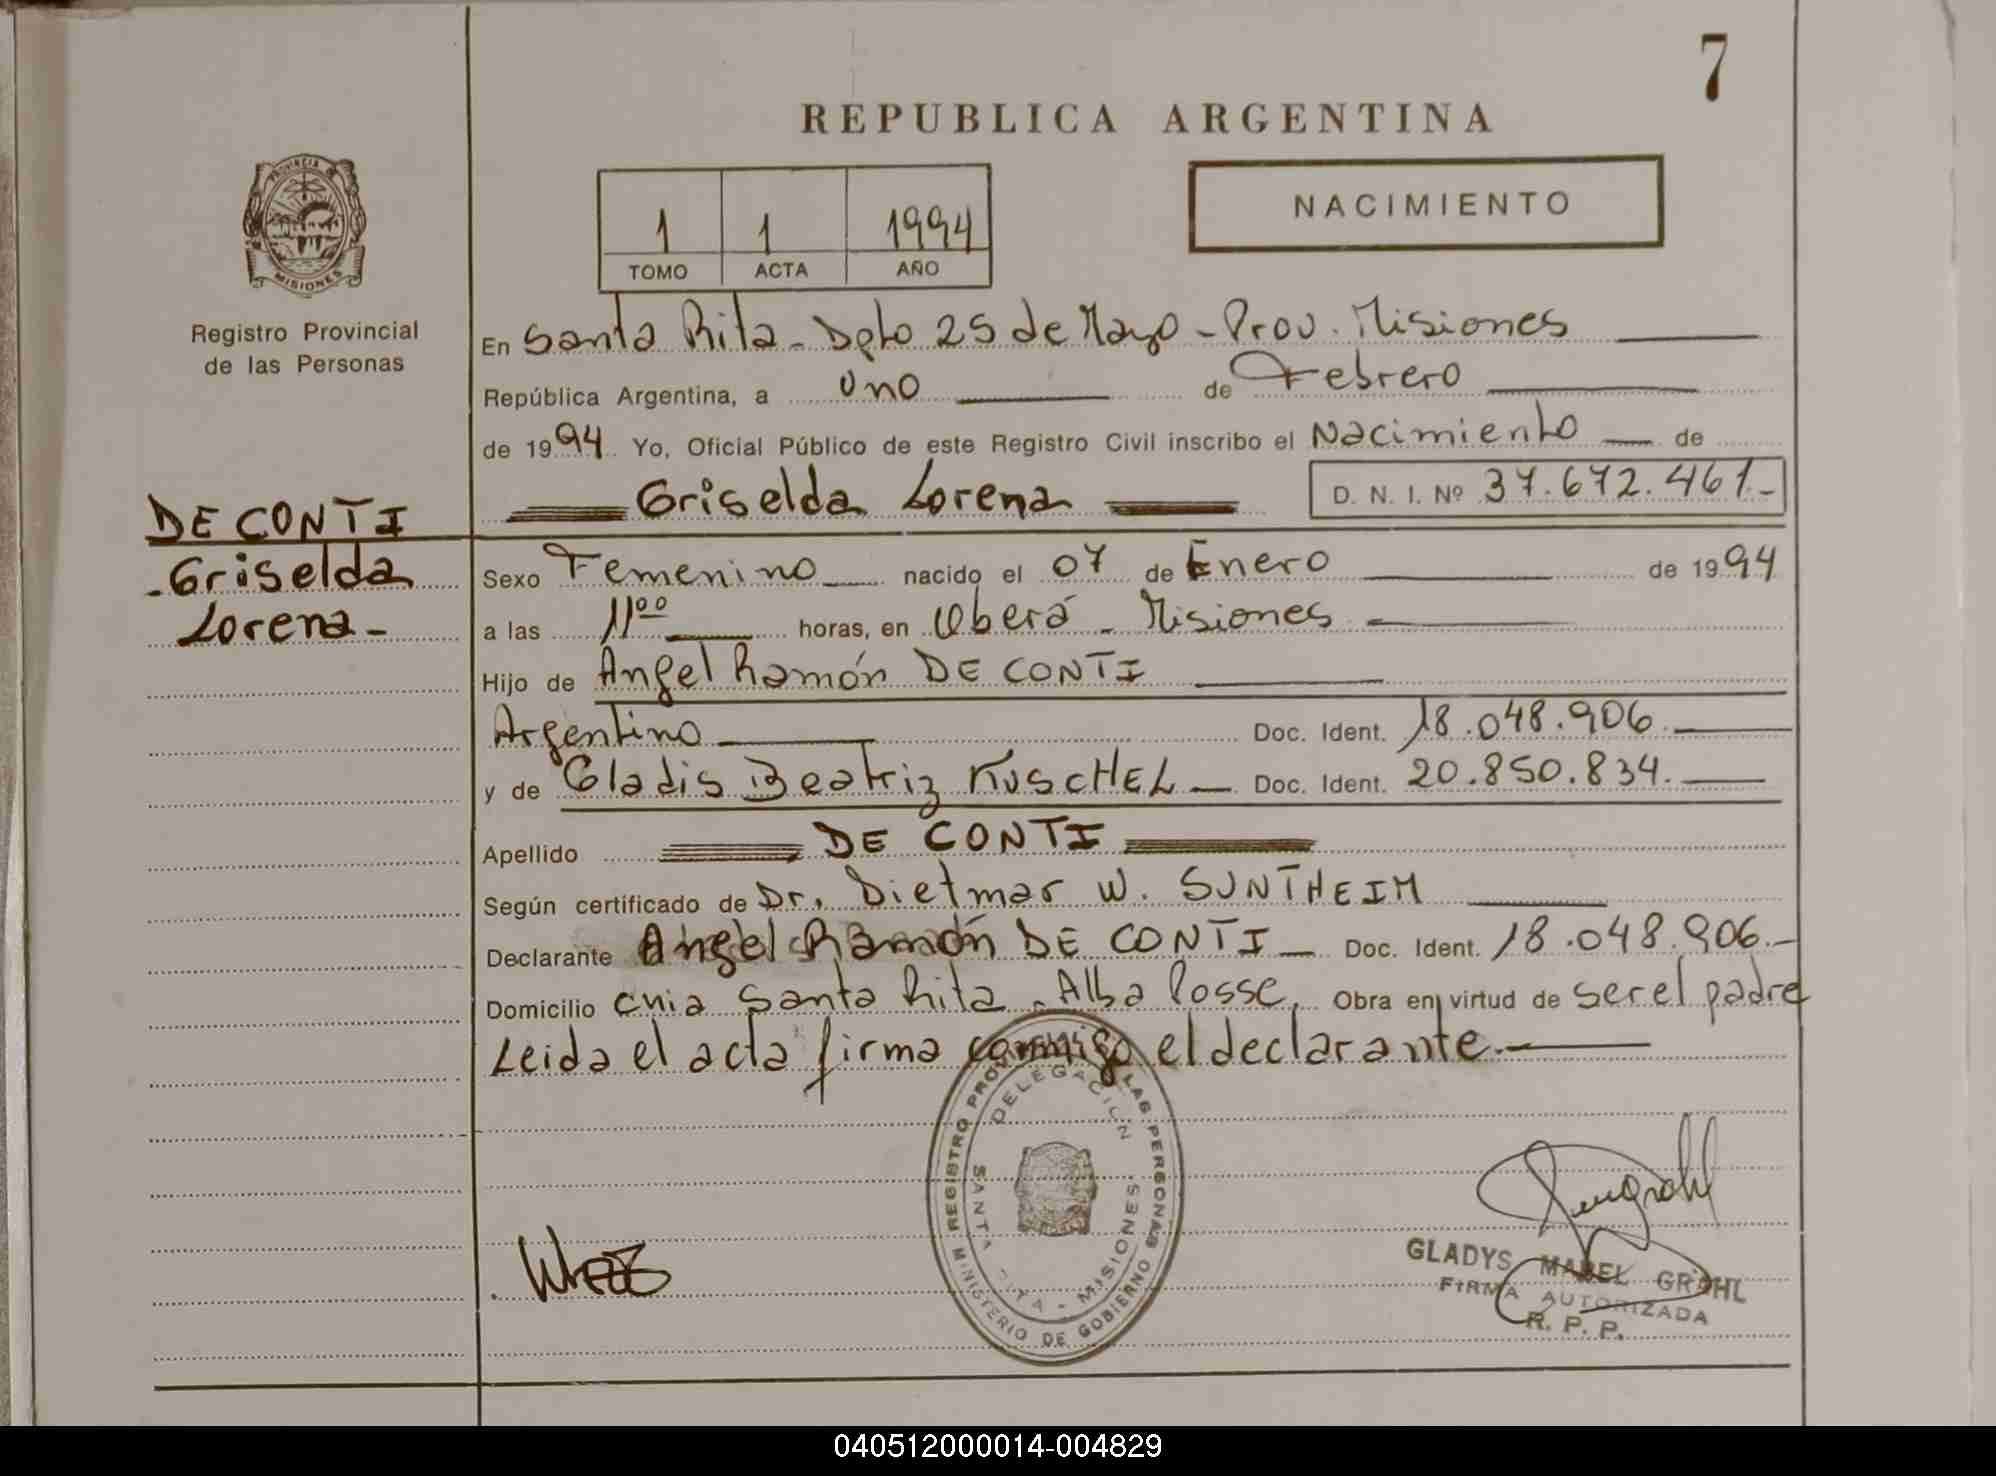 7
REPUBLICA ARGENTINA
PROVINCIA DE
MISIONES
Registro Provincial
de las Personas
1 1 1994
TOMO ACTA AÑO
NACIMIENTO
En Santa Rita - Dpto 25 de Mayo - Prov. Misiones
República Argentina, a uno de Febrero
de 1994 Yo, Oficial Público de este Registro Civil inscribo el Nacimiento de
Griselda Lorena D. N. I. Nº 37.672.461.-
DE CONTI
- Griselda
Lorena -
Sexo Femenino nacido el 07 de Enero de 1994
a las 11⁰⁰ horas, en Oberá - Misiones
Hijo de Angel Ramón DE CONTI
Argentino Doc. Ident. 18.048.906.
y de Gladis Beatriz KUSCHEL Doc. Ident. 20.850.834.
Apellido DE CONTI
Según certificado de Dr. Dietmar W. SUNTHEIM
Declarante Angel Ramón DE CONTI Doc. Ident. 18.048.906.-
Domicilio cnia Santa Rita - Alba Posse. Obra en virtud de ser el padre
Leida el acta firma conmigo el declarante.
REGISTRO PROVINCIAL DE LAS PERSONAS
DELEGACION
SANTA RITA - MISIONES
MINISTERIO DE GOBIERNO
GLADYS MABEL GRAHL
FIRMA AUTORIZADA
R. P. P.
040512000014-004829